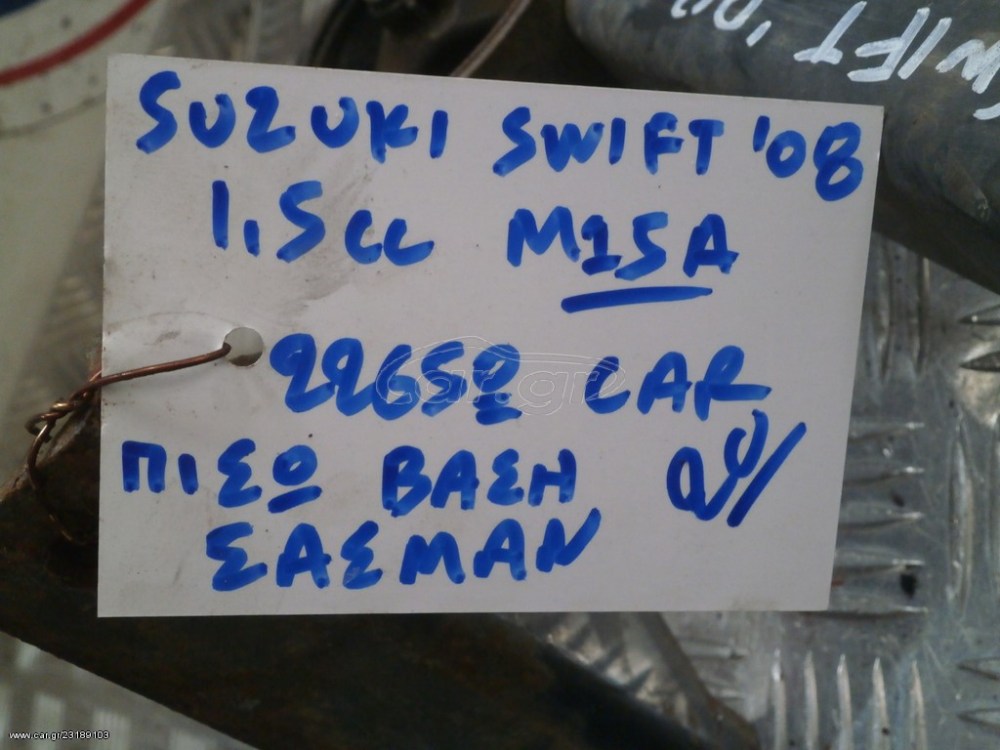 SWIFT '00
SUZUKI SWIFT '08
1,5cc M15A
22650 CAR
ΠΙΣΩ ΒΑΣΗ
ΣΑΣΜΑΝ
www.car.gr/23189103